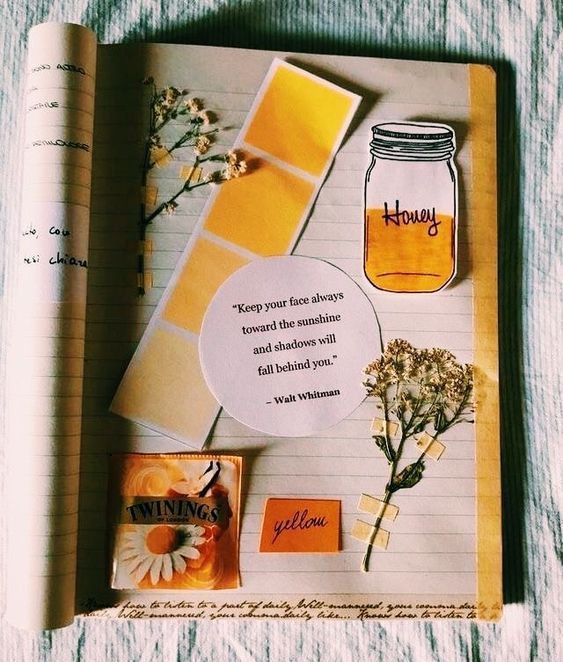 Honey
“Keep your face always
toward the sunshine
and shadows will
fall behind you.”
– Walt Whitman
TWININGS
OF LONDON
yellow
how to listen to a part of daily. Well-mannered, your comma daily
daily. Well-mannered, your comma daily like... Knows how to listen to a